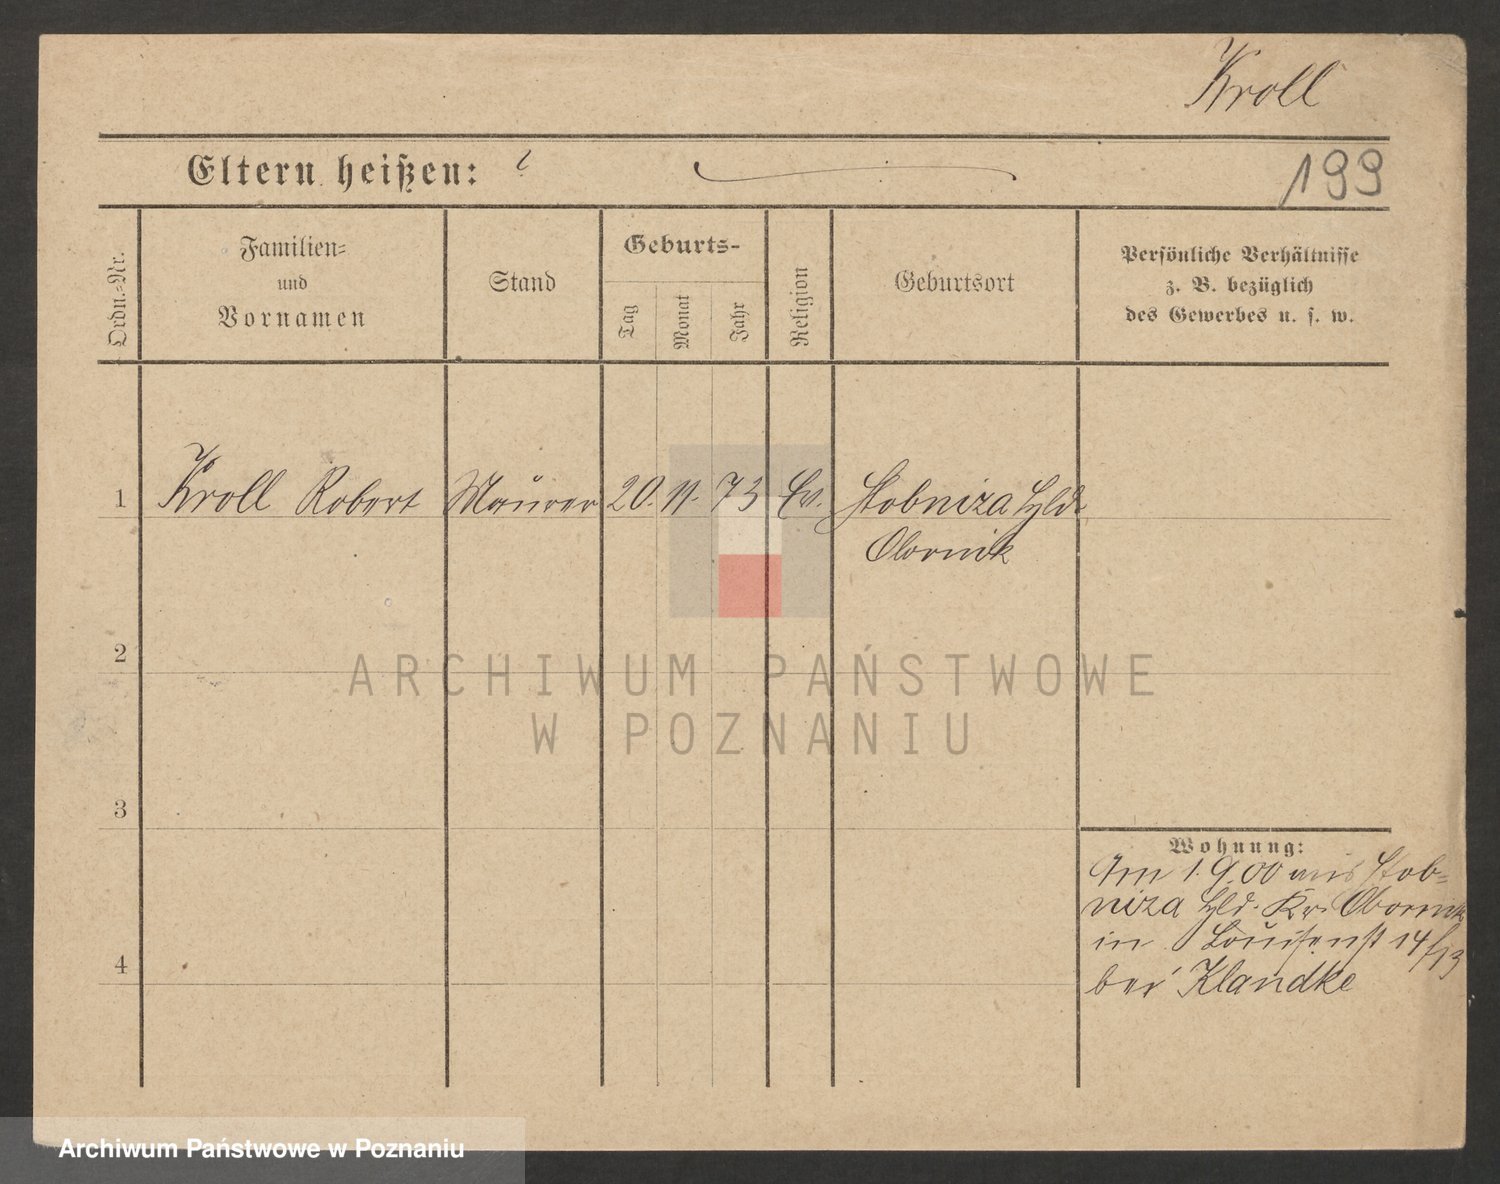 Kroll
Eltern heißen:
199
Ordn.-Nr.
Familien-
und
Vornamen
Stand
Geburts-
Tag
Monat
Jahr
Religion
Geburtsort
Persönliche Verhältnisse
z. B. bezüglich
des Gewerbes u. s. w.
1 Kroll Robert Maurer 20. 11. 73 Ev. Stobniza Hld.
Obornik
2
3
4
Wohnung:
Am 1.9.00 aus Stob-
niza Hld. Kr. Obornik
in Louisenst 14/13
bei Klandke
ARCHIWUM PAŃSTWOWE
W POZNANIU
Archiwum Państwowe w Poznaniu